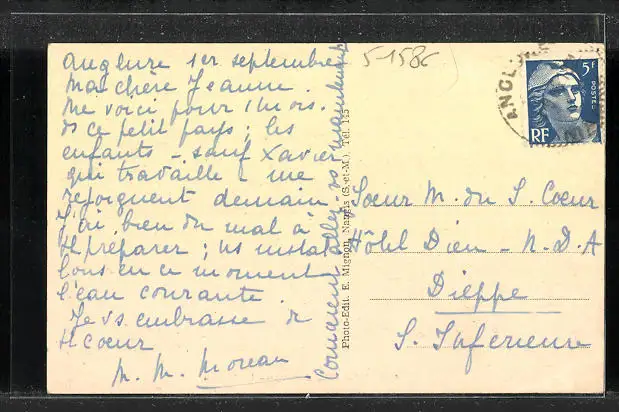 Anglure 1er septembre
Ma chère Jeanne.
Me voici pour 1 mois.
ds ce petit pays ; les
enfants - sauf Xavier
qui travaille - me
rejoignent demain
J'ai bien du mal à
tt préparer ; ns instal-
lons en ce moment
l'eau courante.
Je vs embrasse de
tt cœur
M. M. Moreau
Comment allez-vs maintenant
Photo-Edit. E. Mignon, Nangis (S.-et-M.). Tél. 145
5-1586
ANGLURE
5F
POSTES
RF
Sœur M. du S. Cœur
Hôtel Dieu - N. D. A
Dieppe
S. Inférieure